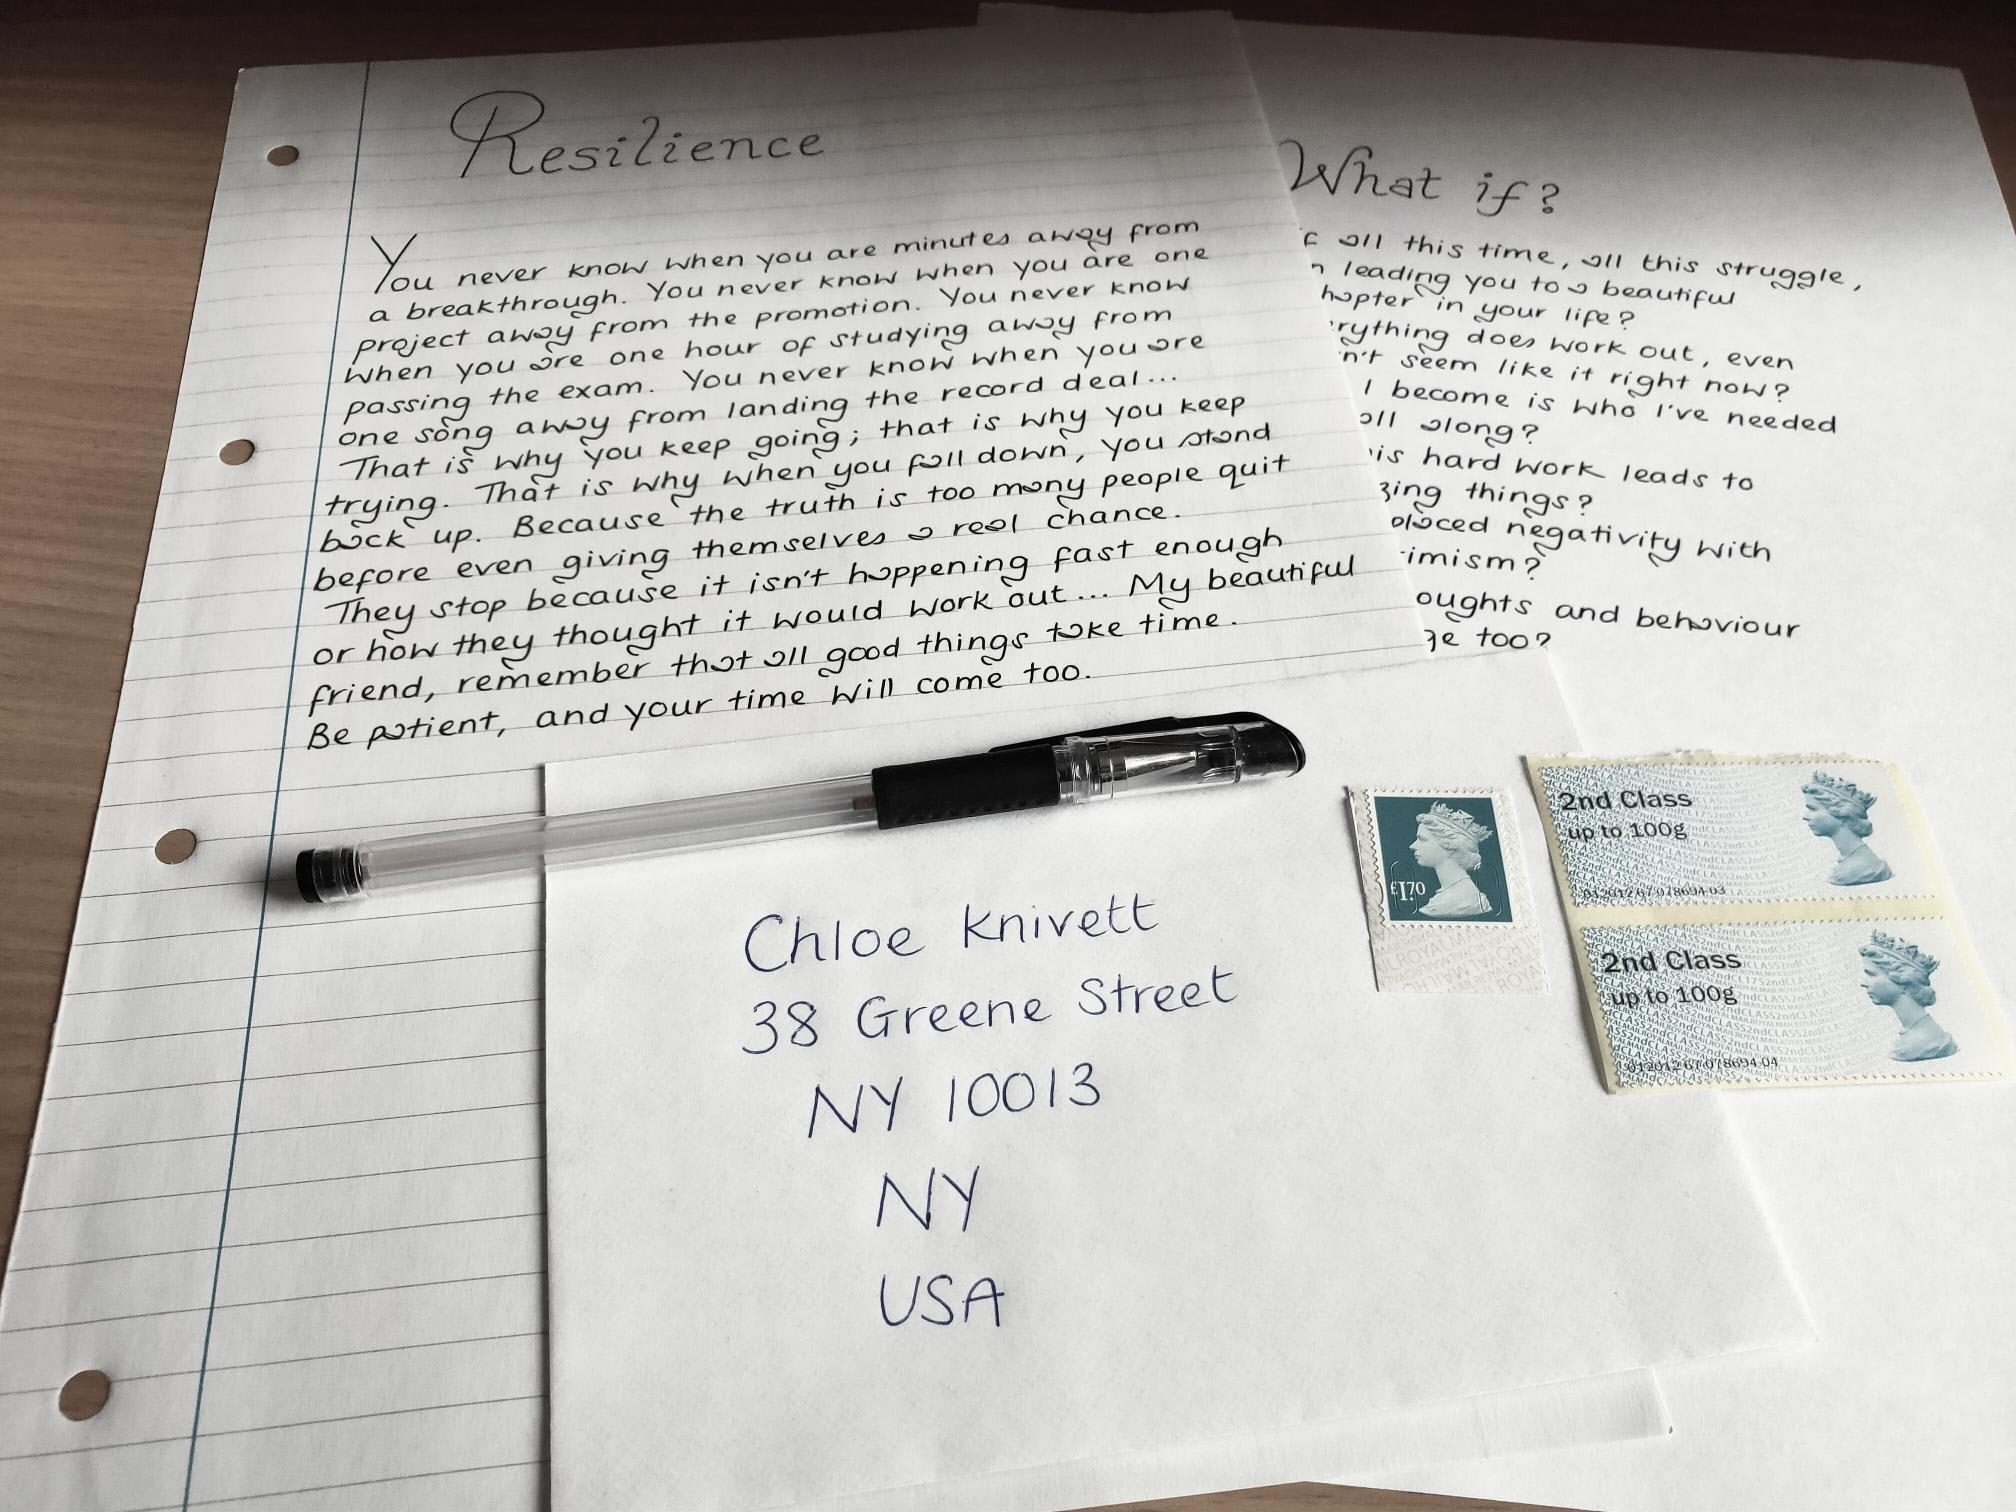 Resilience
You never know when you are minutes away from
a breakthrough. You never know when you are one
project away from the promotion. You never know
when you are one hour of studying away from
passing the exam. You never know when you are
one song away from landing the record deal...
That is why you keep going; that is why you keep
trying. That is why when you fall down, you stand
back up. Because the truth is too many people quit
before even giving themselves a real chance.
They stop because it isn't happening fast enough
or how they thought it would work out... My beautiful
friend, remember that all good things take time.
Be patient, and your time will come too.
What if?
all this time, all this struggle,
leading you to a beautiful
in your life?
does work out, even
seem like it right now?
I become is who I've needed
all along?
hard work leads to
things?
negativity with
and behaviour
too?
£1.70
2nd Class
up to 100g
012012 67 078694 03
2nd Class
up to 100g
012012 67 078694 04
Chloe Knivett
38 Greene Street
NY 10013
NY
USA